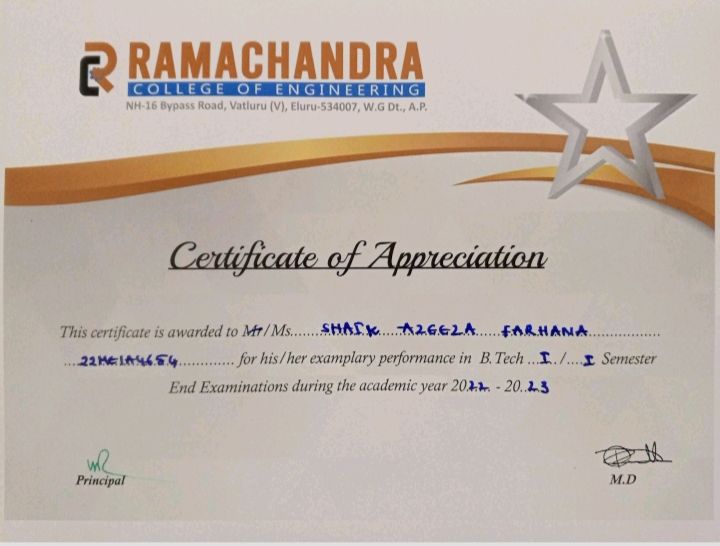 RAMACHANDRA
COLLEGE OF ENGINEERING
NH-16 Bypass Road, Vatluru (V), Eluru-534007, W.G Dt., A.P.
Certificate of Appreciation
This certificate is awarded to Mr/Ms......SHAIK....AZEEZA....FARHANA..................
....22ME1A4654............. for his/her examplary performance in B.Tech ...I../....I Semester
End Examinations during the academic year 2022. - 20..23
Principal
M.D